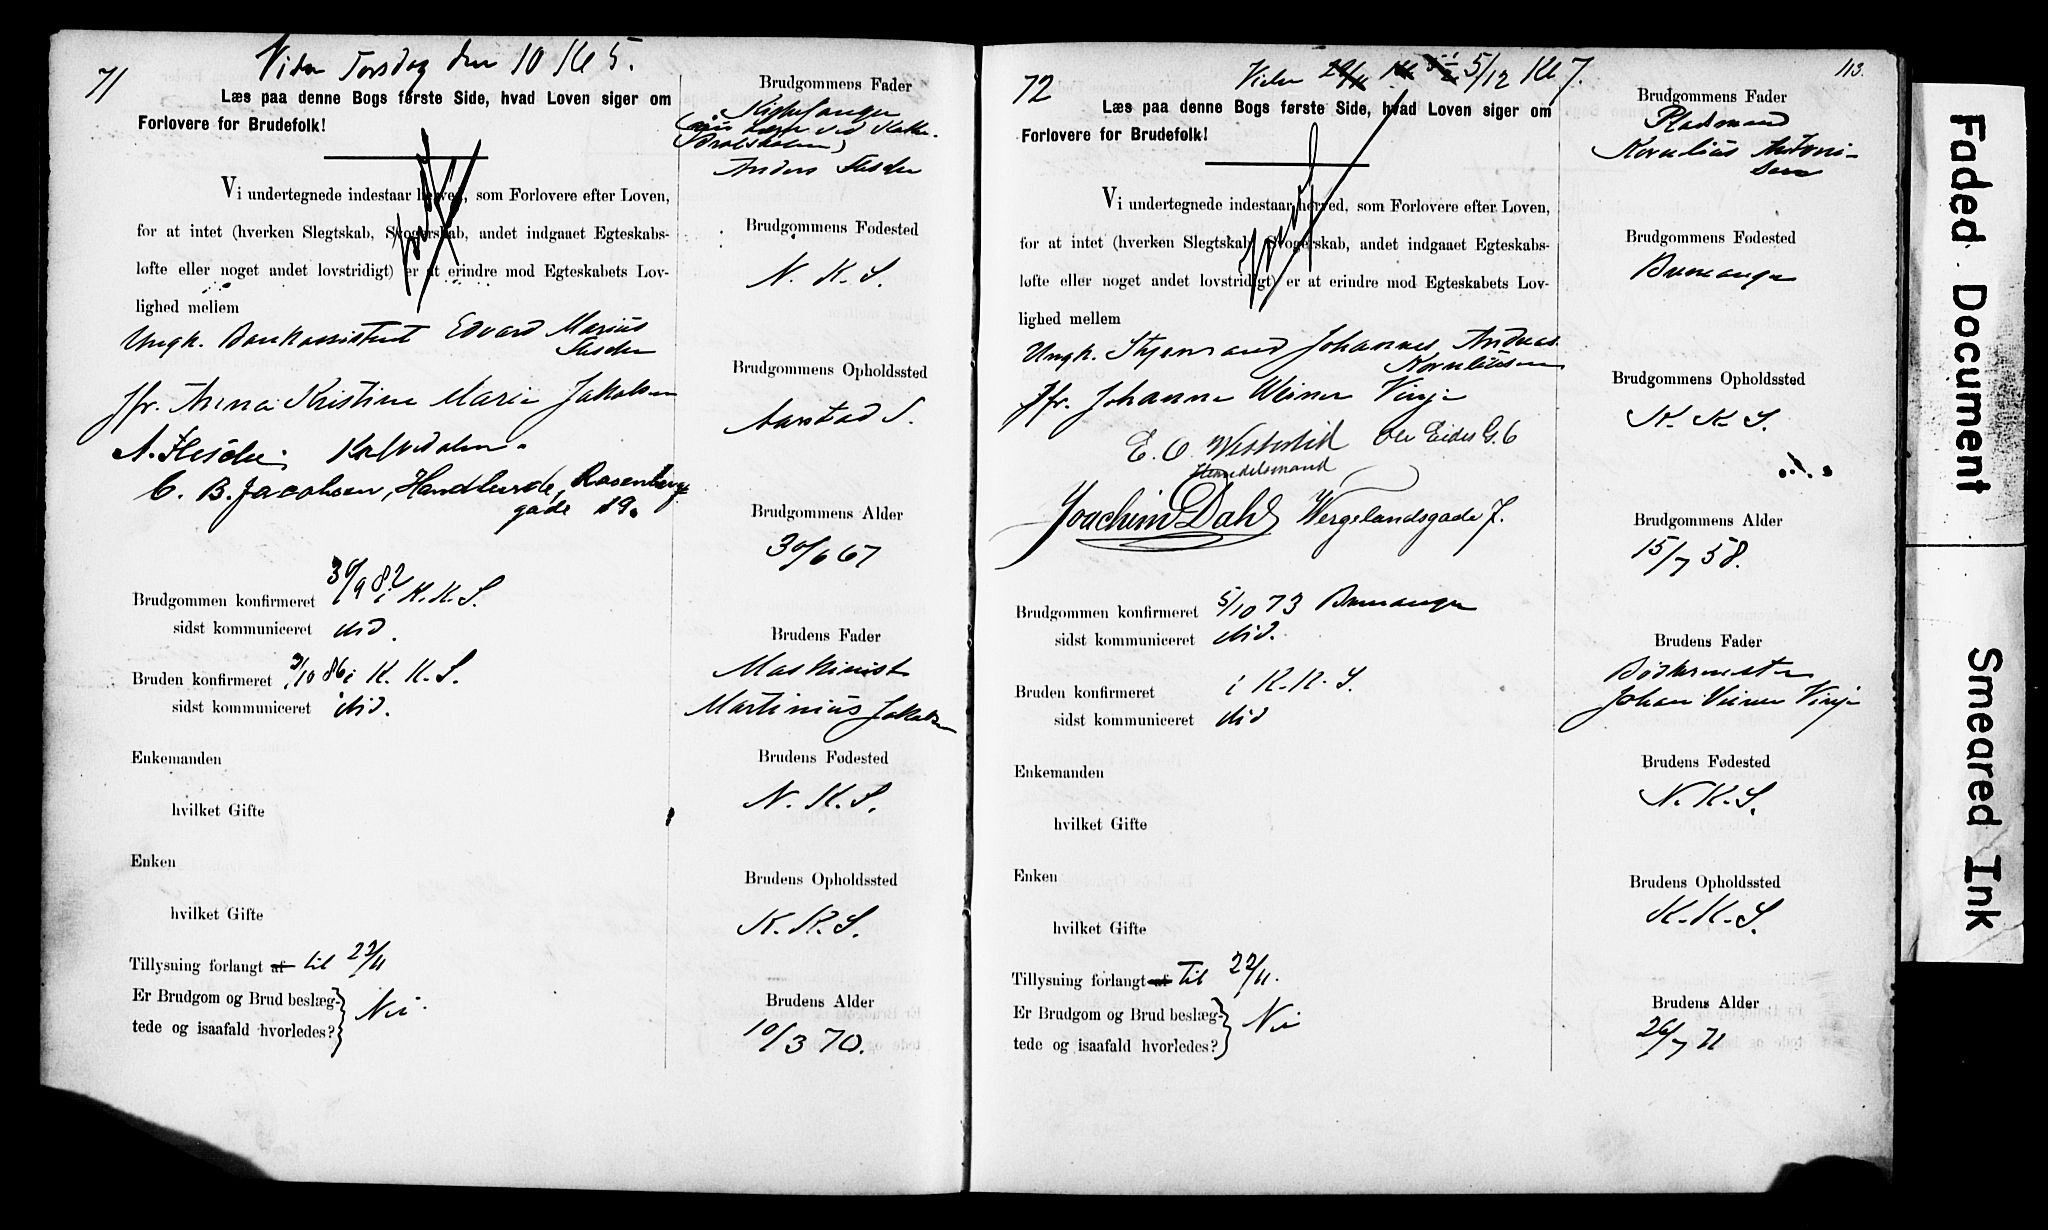 71
Vies Torsdag den 10 Kl 5.
Læs paa denne Bogs første Side, hvad Loven siger om
Forlovere for Brudefolk!
Vi undertegnede indestaar herved, som Forlovere efter Loven,
for at intet (hverken Slegtskab, Svogerskab, andet indgaaet Egteskabs-
løfte eller noget andet lovstridigt) er at erindre mod Egteskabets Lov-
lighed mellem
Ungk. Bankassistent Edvard Marius
Flesche
Jfr. Anna Kristine Marie Jakobsen
A. Flesche, Kalvedalen.
C. B. Jacobsen, Handlende, Rosenberg
gade 19.
Brudgommen konfirmeret 30/9 82 i K. K. S.
sidst kommuniceret did.
Bruden konfirmeret /10 86 i K. K. S.
sidst kommuniceret did.
Enkemanden
hvilket Gifte
Enken
hvilket Gifte
Tillysning forlangt af til 22/11
Er Brudgom og Brud beslæg-
tede og isaafald hvorledes? Nei.
Brudgommens Fader
Kirkesanger
Anders Flesche
Brudgommens Fødested
N. K. S.
Brudgommens Opholdssted
Aarstad S.
Brudgommens Alder
30/6 67
Brudens Fader
Maskinist
Martinius Jakobsen
Brudens Fødested
N. K. S.
Brudens Opholdssted
K. K. S.
Brudens Alder
10/3 70.
72
Vies 29/11 Kl 5/12 Kl 7.
113.
Læs paa denne Bogs første Side, hvad Loven siger om
Forlovere for Brudefolk!
Vi undertegnede indestaar herved, som Forlovere efter Loven,
for at intet (hverken Slegtskab, Svogerskab, andet indgaaet Egteskabs-
løfte eller noget andet lovstridigt) er at erindre mod Egteskabets Lov-
lighed mellem
Ungk. Styrmand Johannes Andreas
Korneliusen
Jfr. Johanne Weiner Vinje
E. O. Westerlid Ole Eides G. 6
Handelsmand
Joachim Dahl Wergelandsgade 7.
Brudgommen konfirmeret 5/10 73 Bremanger
sidst kommuniceret did.
Bruden konfirmeret i K. K. S.
sidst kommuniceret did
Enkemanden
hvilket Gifte
Enken
hvilket Gifte
Tillysning forlangt af til 22/11.
Er Brudgom og Brud beslæg-
tede og isaafald hvorledes? Nei
Brudgommens Fader
Pladsmand
Kornelius Antoni-
sen
Brudgommens Fødested
Bremanger
Brudgommens Opholdssted
K. K. S.
Brudgommens Alder
15/7 58.
Brudens Fader
Bødkermester
Johan Weiner Vinje
Brudens Fødested
N. K. S.
Brudens Opholdssted
K. K. S.
Brudens Alder
26/7 71
Faded Document
Smeared Ink